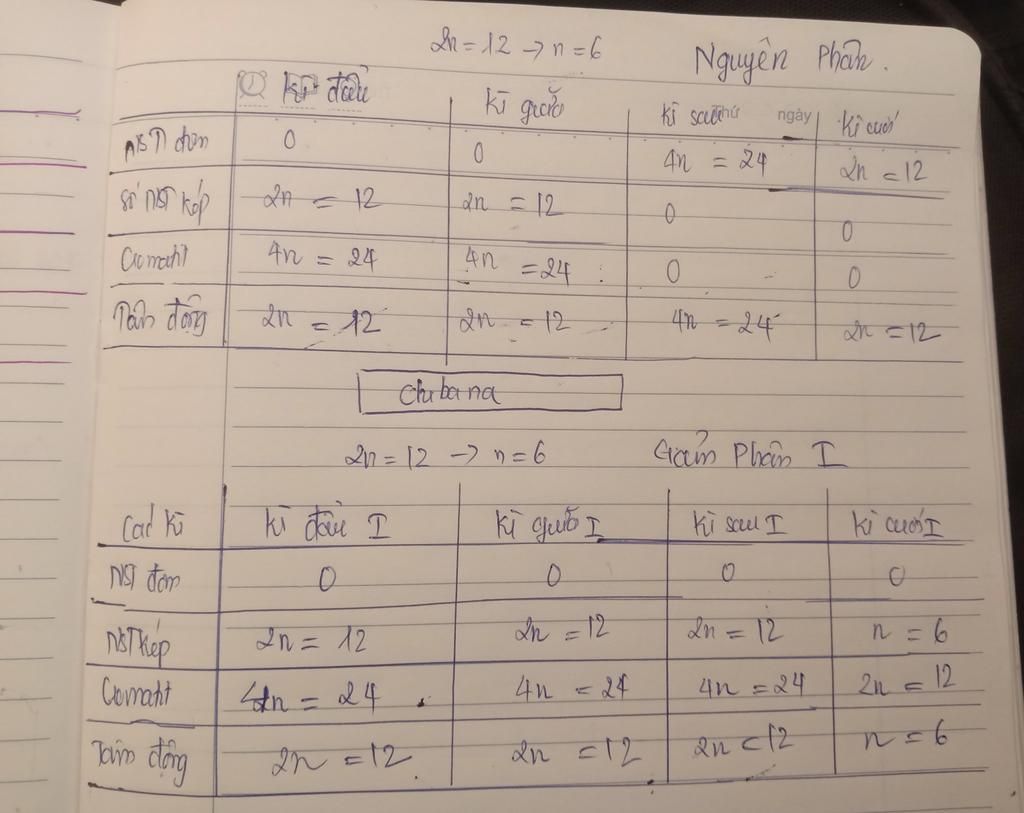 2n = 12 → n = 6 Nguyên Phân.
Kì đầu Kì giữa Kì sau thứ ngày Kì cuối
NST đơn 0 0 4n = 24 2n = 12
Số NST kép 2n = 12 2n = 12 0 0
Cromatit 4n = 24 4n = 24 0 0
Tâm động 2n = 12 2n = 12 4n = 24 2n = 12
Chibana
2n = 12 → n = 6 Giảm Phân I
Các Kì Kì đầu I Kì giữa I Kì sau I Kì cuối I
NST đơn 0 0 0 0
NST kép 2n = 12 2n = 12 2n = 12 n = 6
Cromatit 4n = 24 4n = 24 4n = 24 2n = 12
Tâm động 2n = 12 2n = 12 2n = 12 n = 6